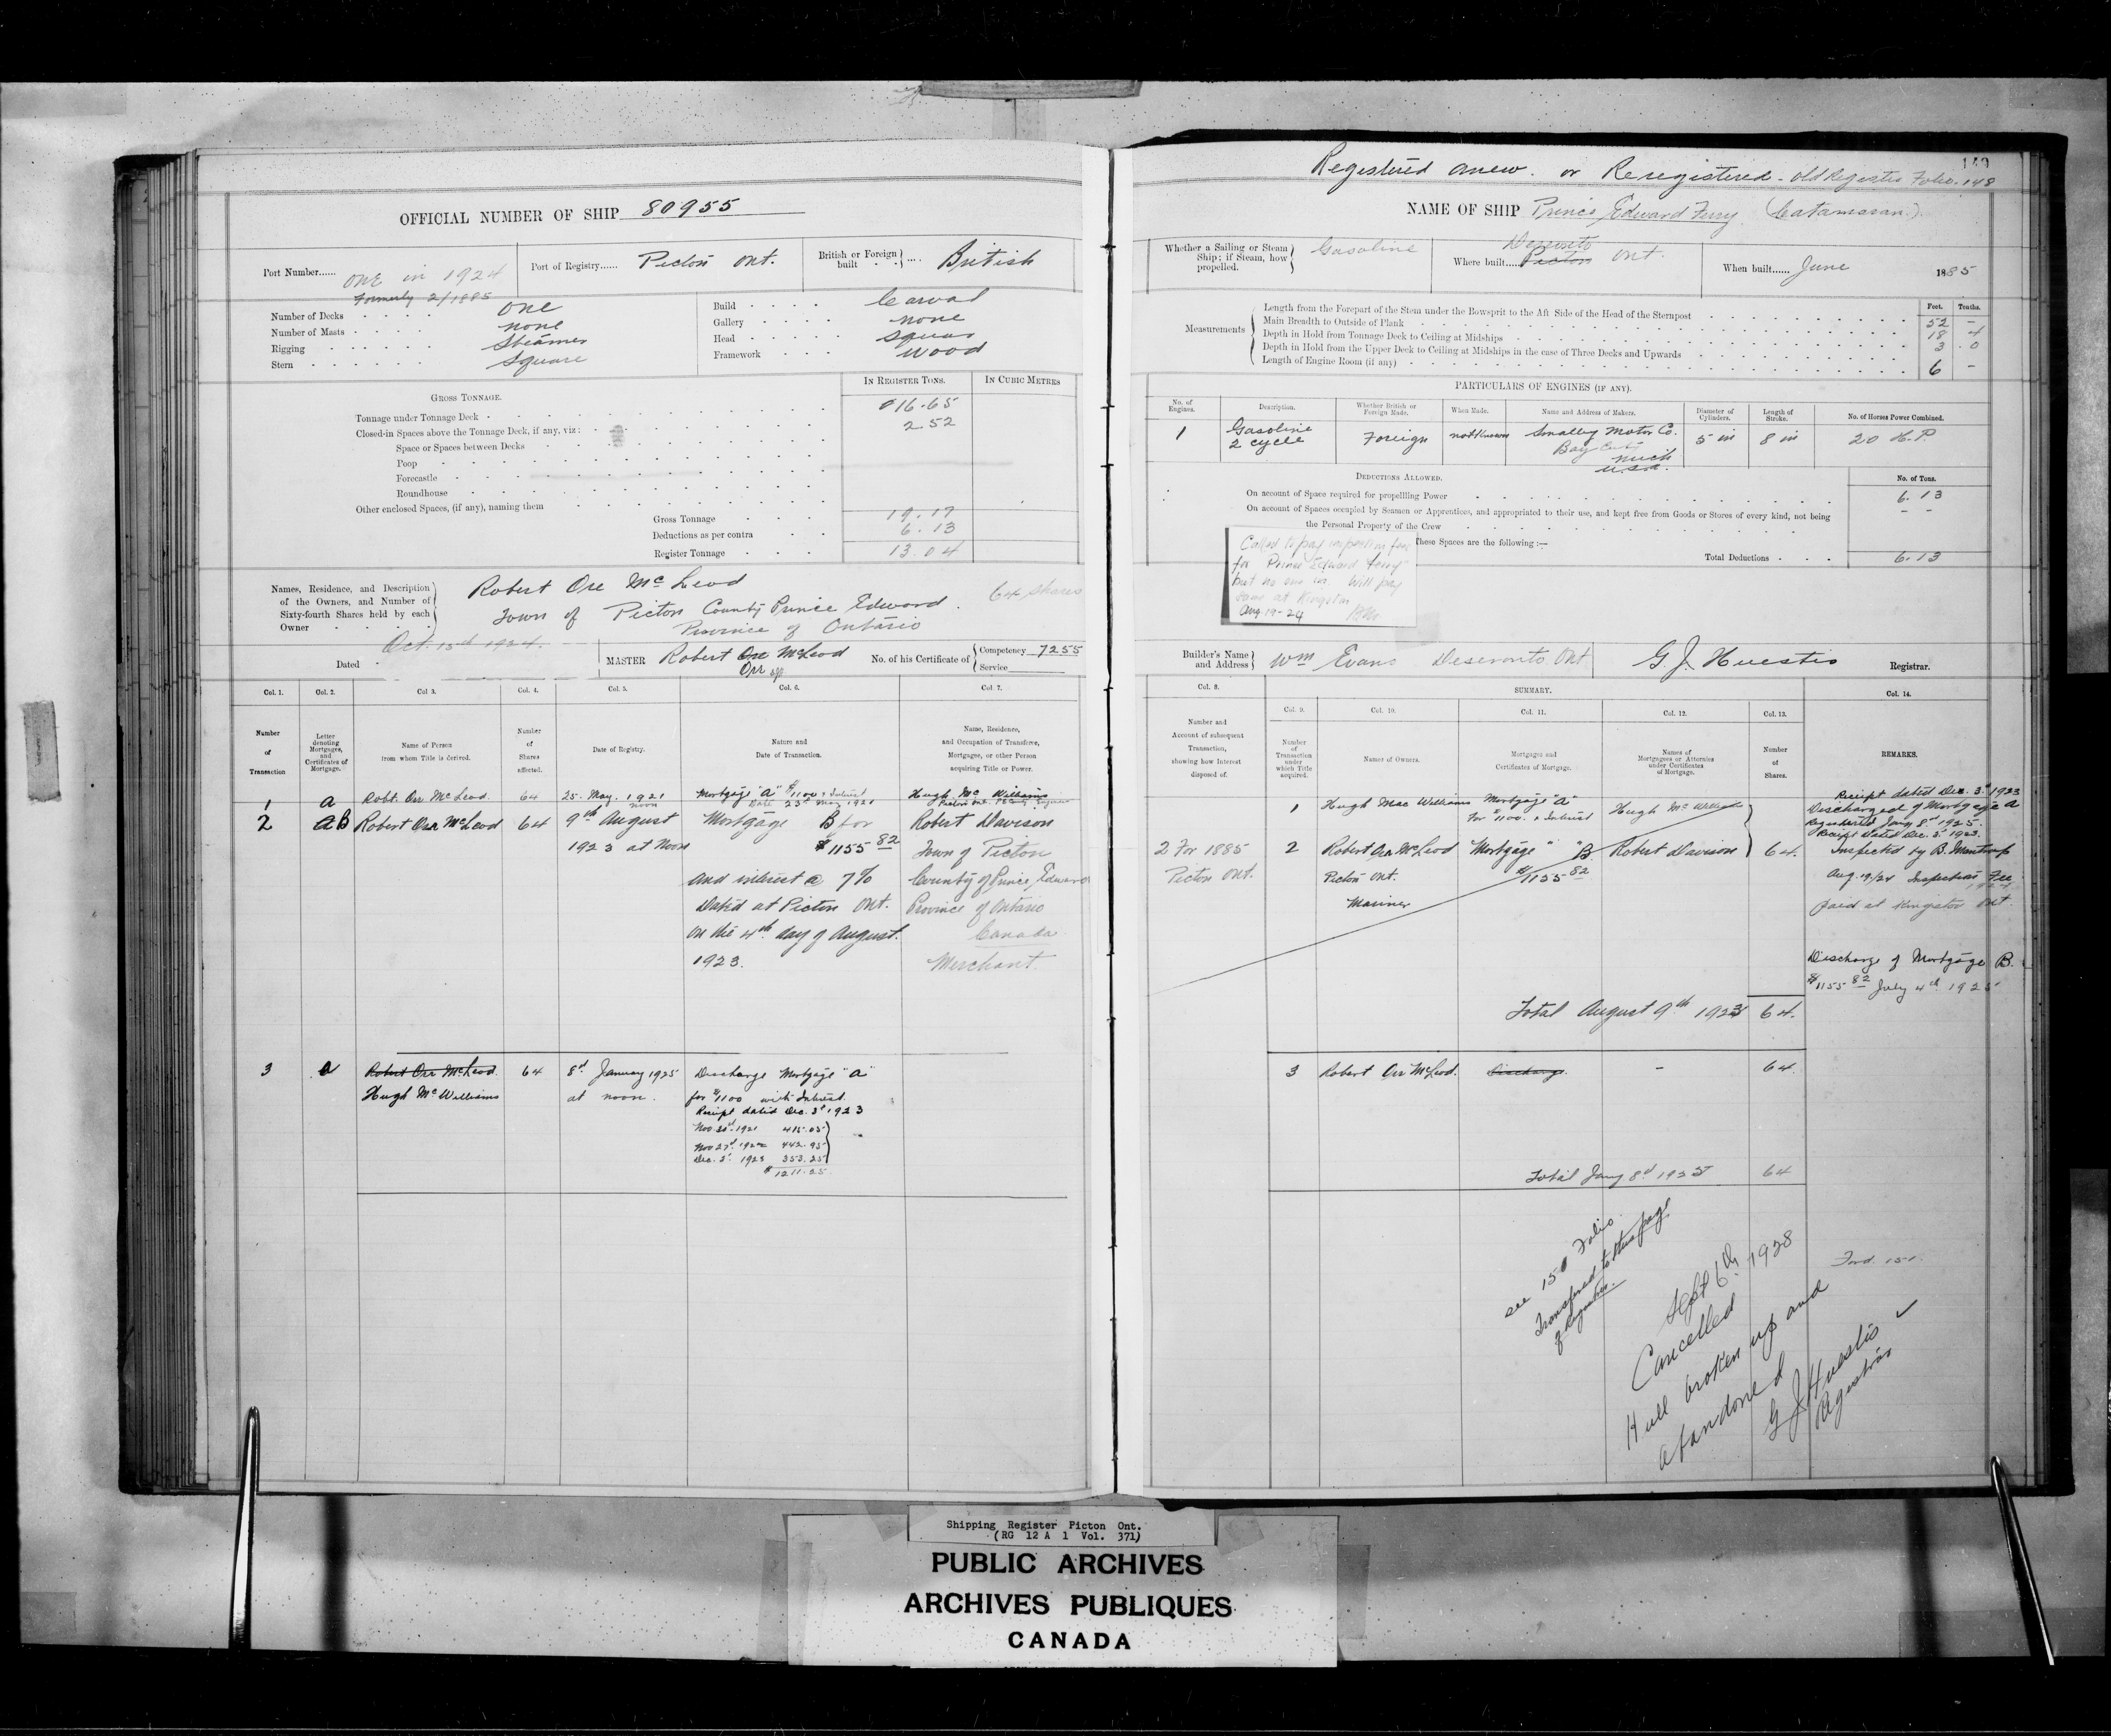 OFFICIAL NUMBER OF SHIP 80955
Port Number...... One in 1924
Formerly 2/1885
Port of Registry...... Picton Ont.
British or Foreign built .... British
Number of Decks One
Number of Masts none
Rigging Steamer
Stern Square
Build Carval
Gallery none
Head Square
Framework Wood
GROSS TONNAGE.
IN REGISTER TONS.
IN CUBIC METRES
Tonnage under Tonnage Deck 16.65
Closed-in Spaces above the Tonnage Deck, if any, viz: 2.52
Space or Spaces between Decks
Poop
Forecastle
Roundhouse
Other enclosed Spaces, (if any), naming them
Gross Tonnage 19.17
Deductions as per contra 6.13
Register Tonnage 13.04
Names, Residence, and Description of the Owners, and Number of Sixty-fourth Shares held by each Owner
Robert Orr McLeod
64 Shares
Town of Picton County Prince Edward.
Province of Ontario
Dated Oct. 15th 1924.
MASTER Robert Orr McLeod
Orr
No. of his Certificate of Competency 7255
Service
Col. 1. Col. 2. Col 3. Col. 4. Col. 5. Col. 6. Col. 7.
Number of Transaction
Letter denoting Mortgages, and Certificates of Mortgage.
Name of Person from whom Title is derived.
Number of Shares affected.
Date of Registry.
Nature and Date of Transaction.
Name, Residence, and Occupation of Transferee, Mortgagee, or other Person acquiring Title or Power.
1 A Robt. Orr McLeod. 64 25. May. 1921 noon Mortgage "A" $1100 & Interest Date 23d May 1921 Hugh Mc Williams
2 AB Robert Orr McLeod 64 9th August Mortgage B for Robert Davison
1923 at Noon $1155 82 Town of Picton
and interest @ 7% County of Prince Edward
Dated at Picton Ont. Province of Ontario
on the 4th day of August. Canada
1923. Merchant.
3 a Robert Orr McLeod. 64 8d January 1925 Discharge Mortgage "A"
Hugh McWilliams at noon. for $1100 with Interest.
Receipt dated Dec. 3d 1923
1921 415.05
Nov 27d 1922 442.95
Dec. 3d 1923 353.25
$1211.25
149
Registered anew. or Reregistered - Old Register Folio. 148
NAME OF SHIP Prince Edward Ferry (Catamaran.)
Whether a Sailing or Steam Ship; if Steam, how propelled. Gasoline
Where built..... Deseronto Picton Ont.
When built...... June 1885
Measurements
Feet. Tenths.
Length from the Forepart of the Stem under the Bowsprit to the Aft Side of the Head of the Sternpost 52 -
Main Breadth to Outside of Plank 18 4
Depth in Hold from Tonnage Deck to Ceiling at Midships 3 .0
Depth in Hold from the Upper Deck to Ceiling at Midships in the case of Three Decks and Upwards
Length of Engine Room (if any) 6 -
PARTICULARS OF ENGINES (IF ANY).
No. of Engines. Description. Whether British or Foreign Made. When Made. Name and Address of Makers. Diameter of Cylinders. Length of Stroke. No. of Horses Power Combined.
1 Gasoline 2 cycle Foreign not known Smalley Motor Co. 5 in 8 in 20 H.P.
Bay City
Mich
U.S.A.
DEDUCTIONS ALLOWED.
No. of Tons.
On account of Space required for propelling Power 6.13
On account of Spaces occupied by Seamen or Apprentices, and appropriated to their use, and kept free from Goods or Stores of every kind, not being - -
the Personal Property of the Crew
These Spaces are the following:—
Total Deductions 6.13
Called to pay inspection fee
for Prince Edward Ferry
but no one in. Will pay
same at Kingston
Aug 19-24
Builder's Name and Address Wm Evans Deseronto Ont
G. J. Huestis Registrar.
Col. 8. SUMMARY. Col. 14.
Col. 9. Col. 10. Col. 11. Col. 12. Col. 13.
Number and Account of subsequent Transaction, showing how Interest disposed of.
Number of Transaction under which Title acquired.
Names of Owners.
Mortgages and Certificates of Mortgage.
Names of Mortgagees or Attornies under Certificates of Mortgage.
Number of Shares.
REMARKS.
1 Hugh Mac Williams Mortgage "A" For $1100. & Interest Hugh McWilliams
2 For 1885 2 Robert Orr McLeod Mortgage " "B. Robert Davison 64.
Picton Ont. Picton Ont. $1155 82
Mariner
Receipt dated Dec. 3d 1923
Discharged of Mortgage A
Registered Jany 8d 1925.
Receipt Dated Dec. 3d 1923.
Inspected by B.
Aug. 19/24 Inspection Fee
1924
paid at Kingston Ont
Discharge of Mortgage B.
$1155 82 July 4th 1925
Total August 9th 1923 64.
3 Robert Orr McLeod. Discharge. - 64.
Total Jany 8d 1925 64
see 150 Folio
Transferred to this page
of Register.
Sept 6th 1928
Cancelled
Hull broken up and
abandoned
G J Huestis
Registrar
Ford. 151.
Shipping Register Picton Ont.
(RG 12 A 1 Vol. 371)
PUBLIC ARCHIVES
ARCHIVES PUBLIQUES
CANADA